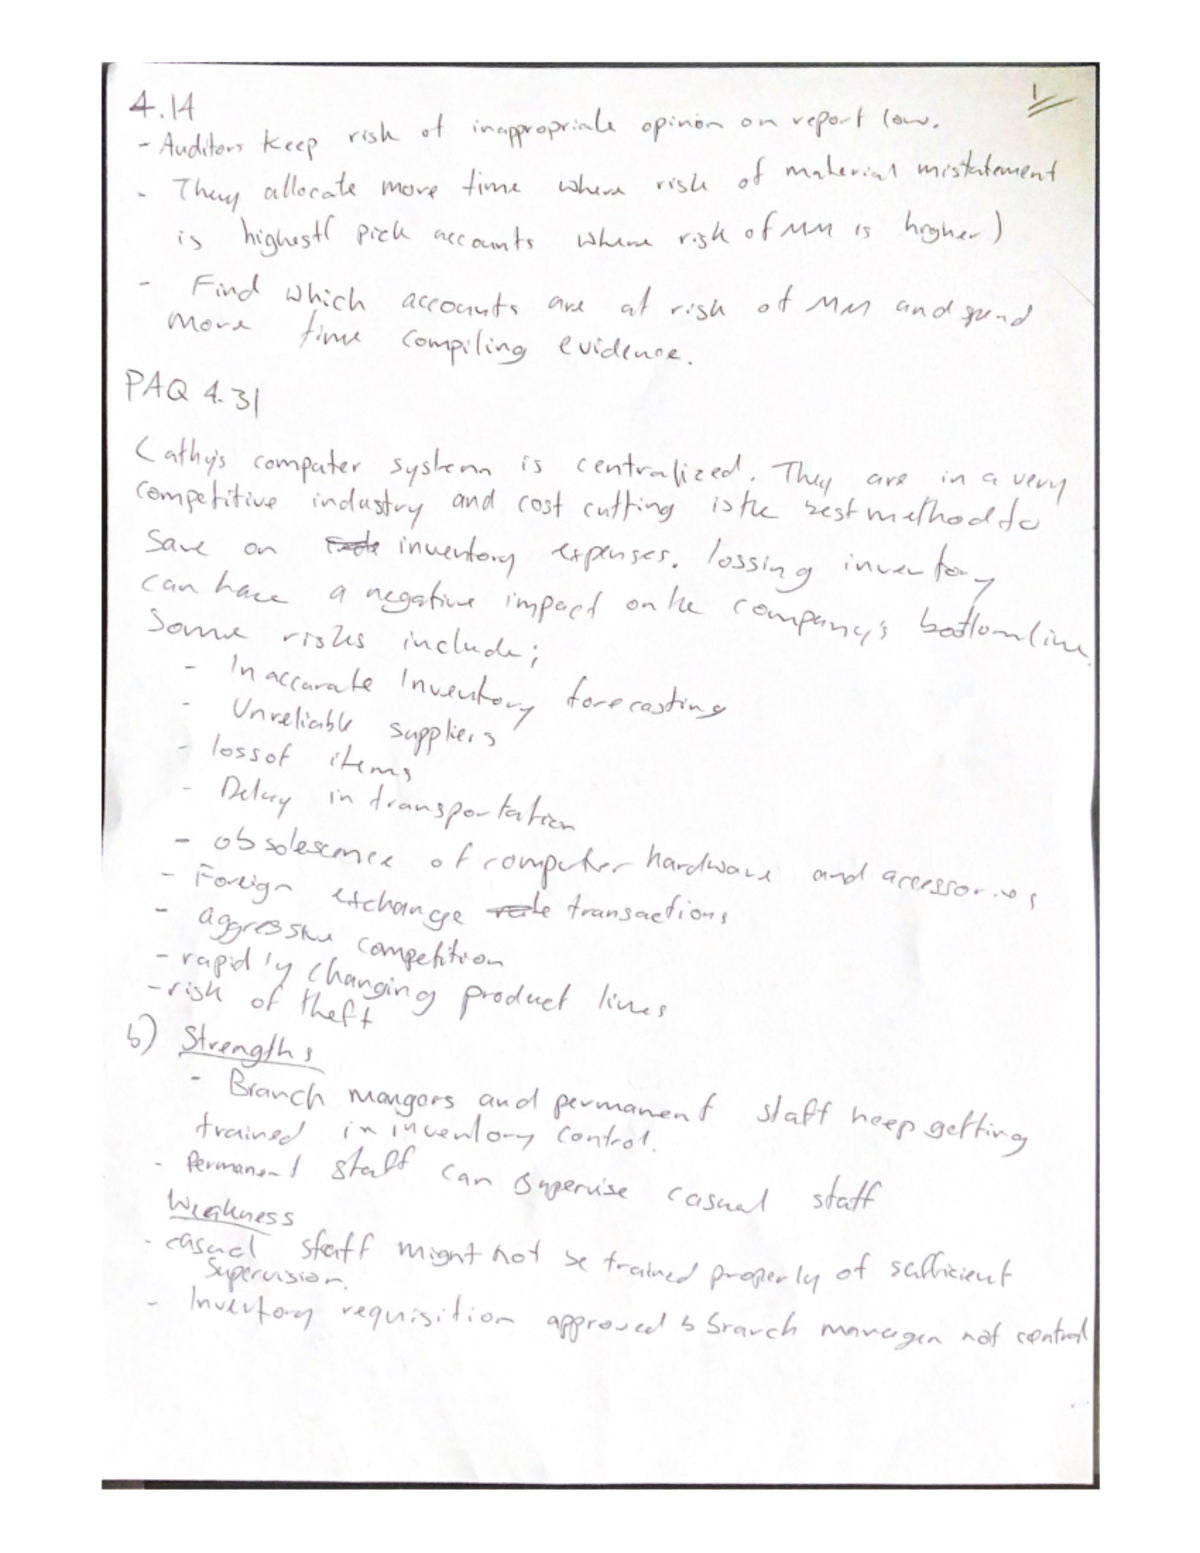 1
4.14
- Auditors keep risk of inappropriate opinion on report low.
- They allocate more time where risk of material mistatement
is highest ( pick accounts where risk of MM is higher )
- Find which accounts are at risk of MM and spend
more time compiling evidence.
PAQ 4.31
Cathy's computer system is centralized. They are in a very
competitive industry and cost cutting is the best method to
save on inventory expenses. lossing inventory
can have a negative impact on the company's bottomline.
Some risks include;
- Inaccurate Inventory forecasting
- Unreliable suppliers
- loss of items
- Delay in transportation
- obsolescence of computer hardware and accessories
- Foreign exchange transactions
- aggressive competition
- rapidly changing product lines
- risk of theft
b) Strengths
- Branch mangers and permanent staff keep getting
trained in inventory control.
- Permanent staff can supervise casual staff
Weakness
- casual staff might not be trained properly of sufficient
supervision.
- Inventory requisition approved b branch manager not control